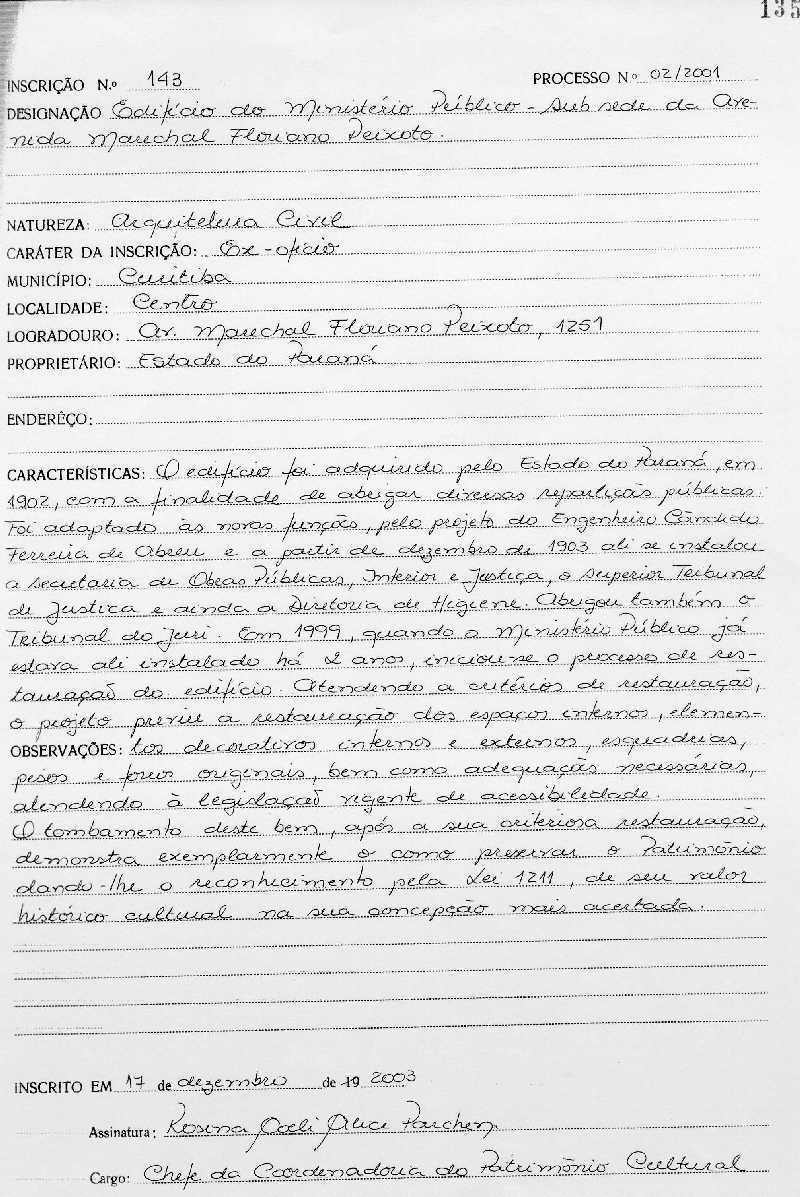 135
INSCRIÇÃO N.º 143 PROCESSO Nº 02/2001
DESIGNAÇÃO Edifício do Ministério Público - Sub sede da Ave-
nida Marechal Floriano Peixoto.
NATUREZA: Arquitetura Civil
CARÁTER DA INSCRIÇÃO: Ex-ofício
MUNICÍPIO: Curitiba
LOCALIDADE: Centro
LOGRADOURO: Av. Marechal Floriano Peixoto, 1251
PROPRIETÁRIO: Estado do Paraná
ENDERÊÇO:
CARACTERÍSTICAS: O edifício foi adquirido pelo Estado do Paraná, em
1902, com a finalidade de abrigar diversas repartições públicas.
Foi adaptado às novas funções, pelo projeto do Engenheiro Cândido
Ferreira de Abreu e a partir de dezembro de 1903 ali se instalou
a Secretaria de Obras Públicas, Interior e Justiça, o Superior Tribunal
de Justiça e ainda a Diretoria de Higiene. Abrigou também o
Tribunal do Juri. Em 1999, quando o Ministério Público já
estava ali instalado há 2 anos, iniciou-se o processo de res-
tauração do edifício. Atendendo a critérios de restauração,
o projeto previu a restauração dos espaços internos, elemen-
OBSERVAÇÕES: tos decorativos internos e externos, esquadrias,
pisos e forros originais, bem como adequações necessárias,
atendendo à legislação vigente de acessibilidade.
O tombamento deste bem, após a sua criteriosa restauração,
demonstra exemplarmente o como preservar o Patrimônio
dando-lhe o reconhecimento pela Lei 1211, de seu valor
histórico cultural na sua concepção mais acertada.
INSCRITO EM 17 de dezembro de 19 2003
Assinatura: Rosina Coeli Alice Parchen
Cargo: Chefe da Coordenadoria do Patrimônio Cultural